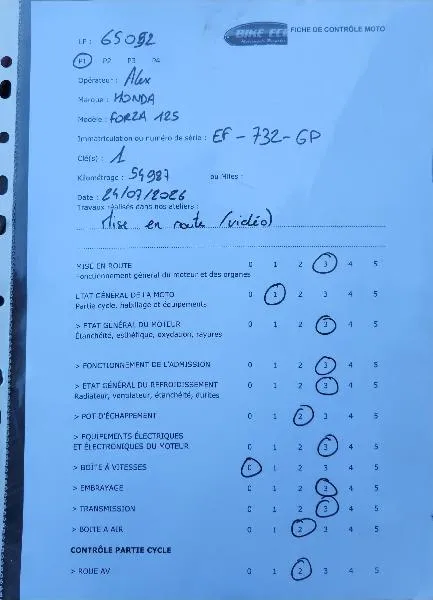 LP : 65092
BIKE ECO FICHE DE CONTRÔLE MOTO
P1 P2 P3 P4
Opérateur : Alex
Marque : HONDA
Modèle : FORZA 125
Immatriculation ou numéro de série : EF-732-GP
Clé(s) : 1
Kilométrage : 54987 ou Miles :
Date : 24/07/2026
Travaux réalisés dans nos ateliers :
Mise en route (vidéo)
MISE EN ROUTE 0 1 2 3 4 5
Fonctionnement général du moteur et des organes
ETAT GÉNÉRAL DE LA MOTO 0 1 2 3 4 5
Partie cycle, habillage et équipements
> ETAT GÉNÉRAL DU MOTEUR 0 1 2 3 4 5
Étanchéité, esthétique, oxydation, rayures
> FONCTIONNEMENT DE L'ADMISSION 0 1 2 3 4 5
> ETAT GÉNÉRAL DU REFROIDISSEMENT 0 1 2 3 4 5
Radiateur, ventilateur, étanchéité, durites
> POT D'ÉCHAPPEMENT 0 1 2 3 4 5
> EQUIPEMENTS ÉLECTRIQUES
ET ÉLECTRONIQUES DU MOTEUR 0 1 2 3 4 5
> BOÎTE À VITESSES 0 1 2 3 4 5
> EMBRAYAGE 0 1 2 3 4 5
> TRANSMISSION 0 1 2 3 4 5
> BOITE A AIR 0 1 2 3 4 5
CONTRÔLE PARTIE CYCLE
> ROUE AV 0 1 2 3 4 5